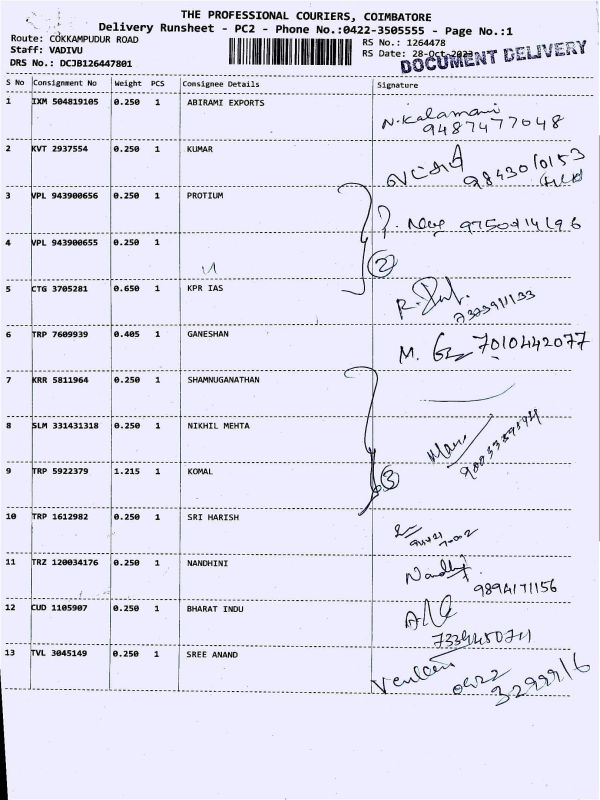 THE PROFESSIONAL COURIERS, COIMBATORE
Delivery Runsheet - PC2 - Phone No.:0422-3505555 - Page No.:1
Route: COKKAMPUDUR ROAD
Staff: VADIVU
DRS No.: DCJB126447801
RS No.: 1264478
RS Date: 28-Oct-2023
DOCUMENT DELIVERY
S No Consignment No Weight PCS Consignee Details Signature
1 IXM 504819105 0.250 1 ABIRAMI EXPORTS N.Kalamani
9487477048
2 KVT 2937554 0.250 1 KUMAR
3 VPL 943900656 0.250 1 PROTIUM
4 VPL 943900655 0.250 1
2
5 CTG 3705281 0.650 1 KPR IAS
6 TRP 7609939 0.405 1 GANESHAN M. 7010442077
7 KRR 5811964 0.250 1 SHAMNUGANATHAN
8 SLM 331431318 0.250 1 NIKHIL MEHTA
9 TRP 5922379 1.215 1 KOMAL
3
10 TRP 1612982 0.250 1 SRI HARISH
11 TRZ 120034176 0.250 1 NANDHINI
9894171156
12 CUD 1105907 0.250 1 BHARAT INDU
13 TVL 3045149 0.250 1 SREE ANAND
0422